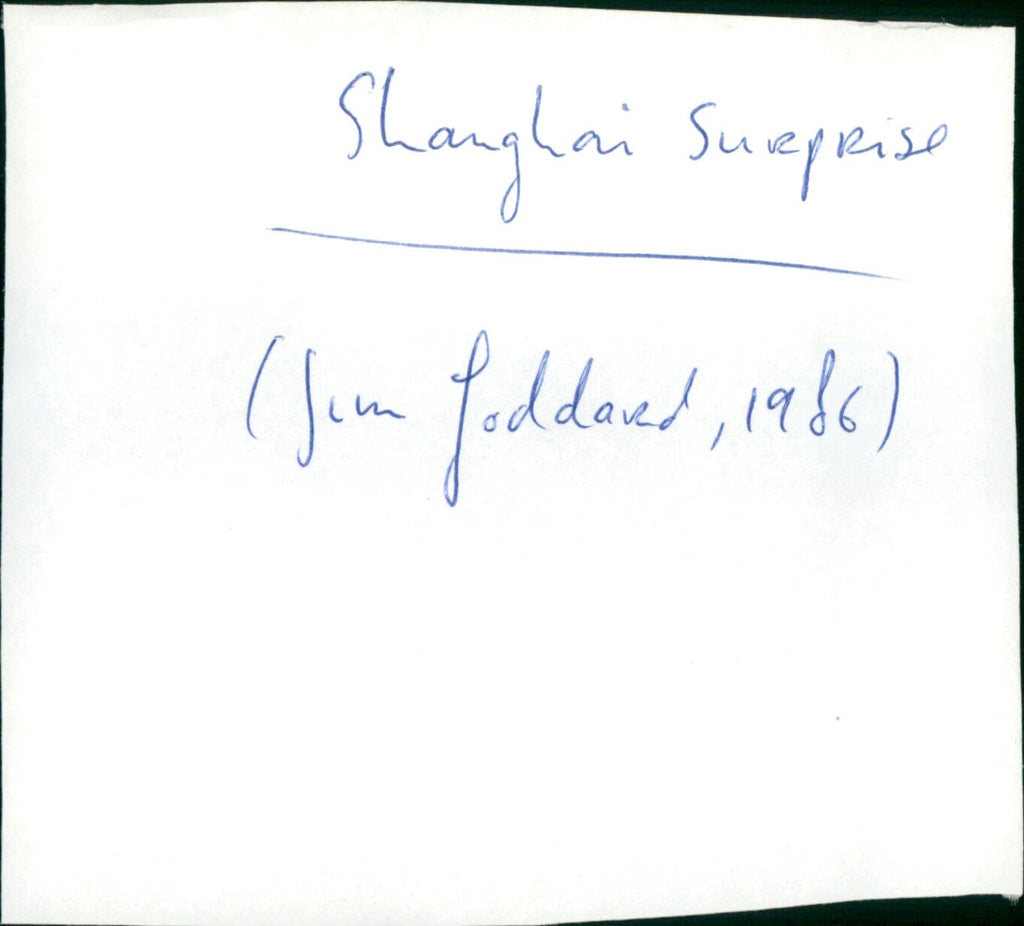 Shanghai Surprise
(Jim Goddard, 1986)